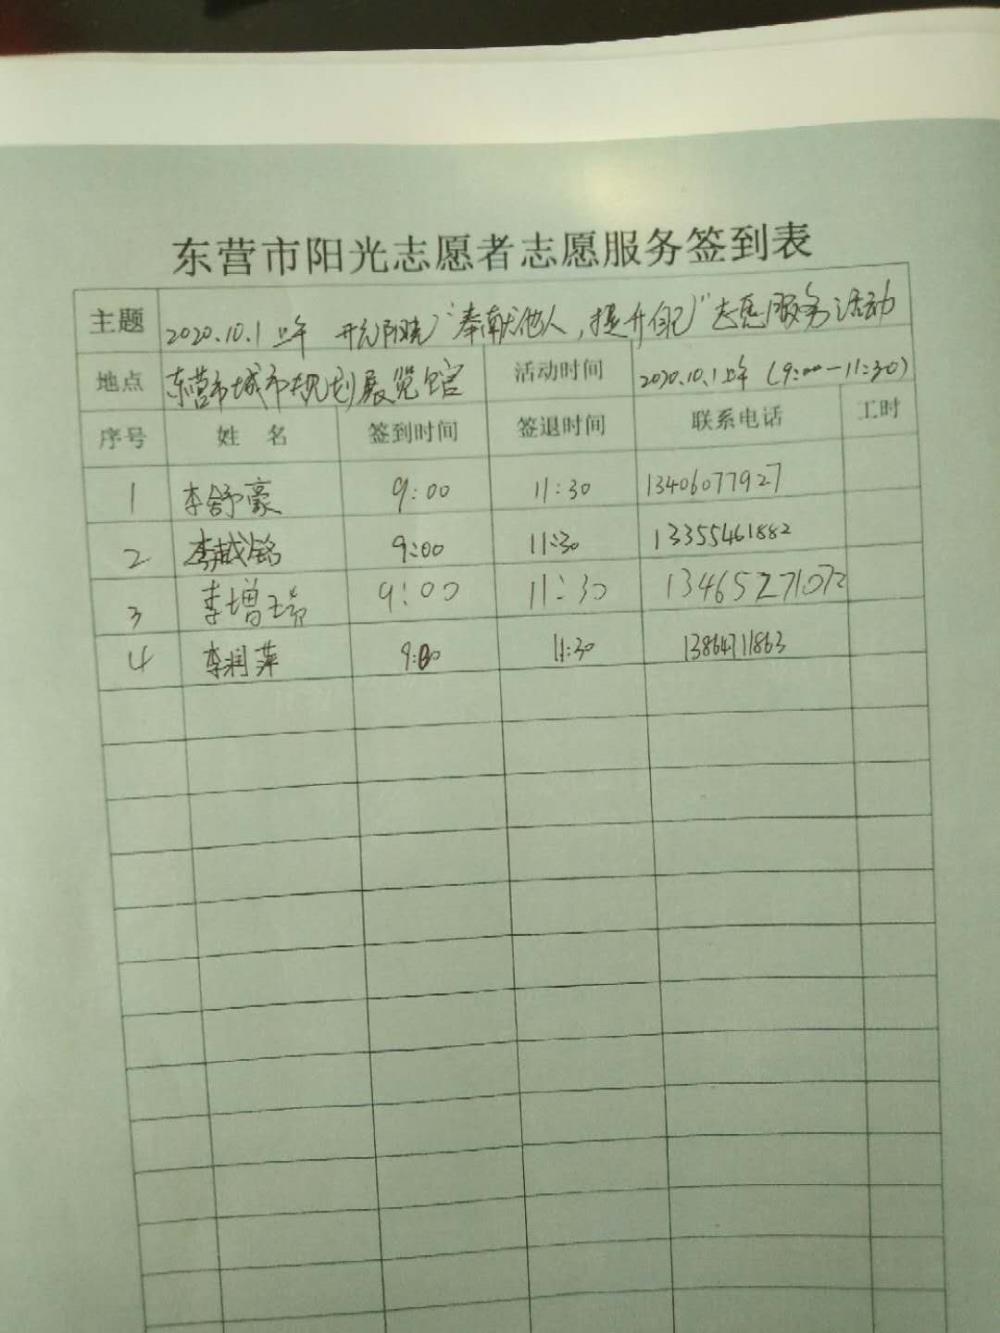 东营市阳光志愿者志愿服务签到表
主题 2020.10.1上午 "奉献他人，提升自己"志愿服务活动
地点 东营市城市规划展览馆 活动时间 2020.10.1上午 (9:00-11:30)
序号 姓名 签到时间 签退时间 联系电话 工时
1 李舒豪 9:00 11:30 13406077927
2 李越铭 9:00 11:30 13355461882
3 李增 9:00 11:30 13465271072
4 李润萍 9:00 11:30 13864711863